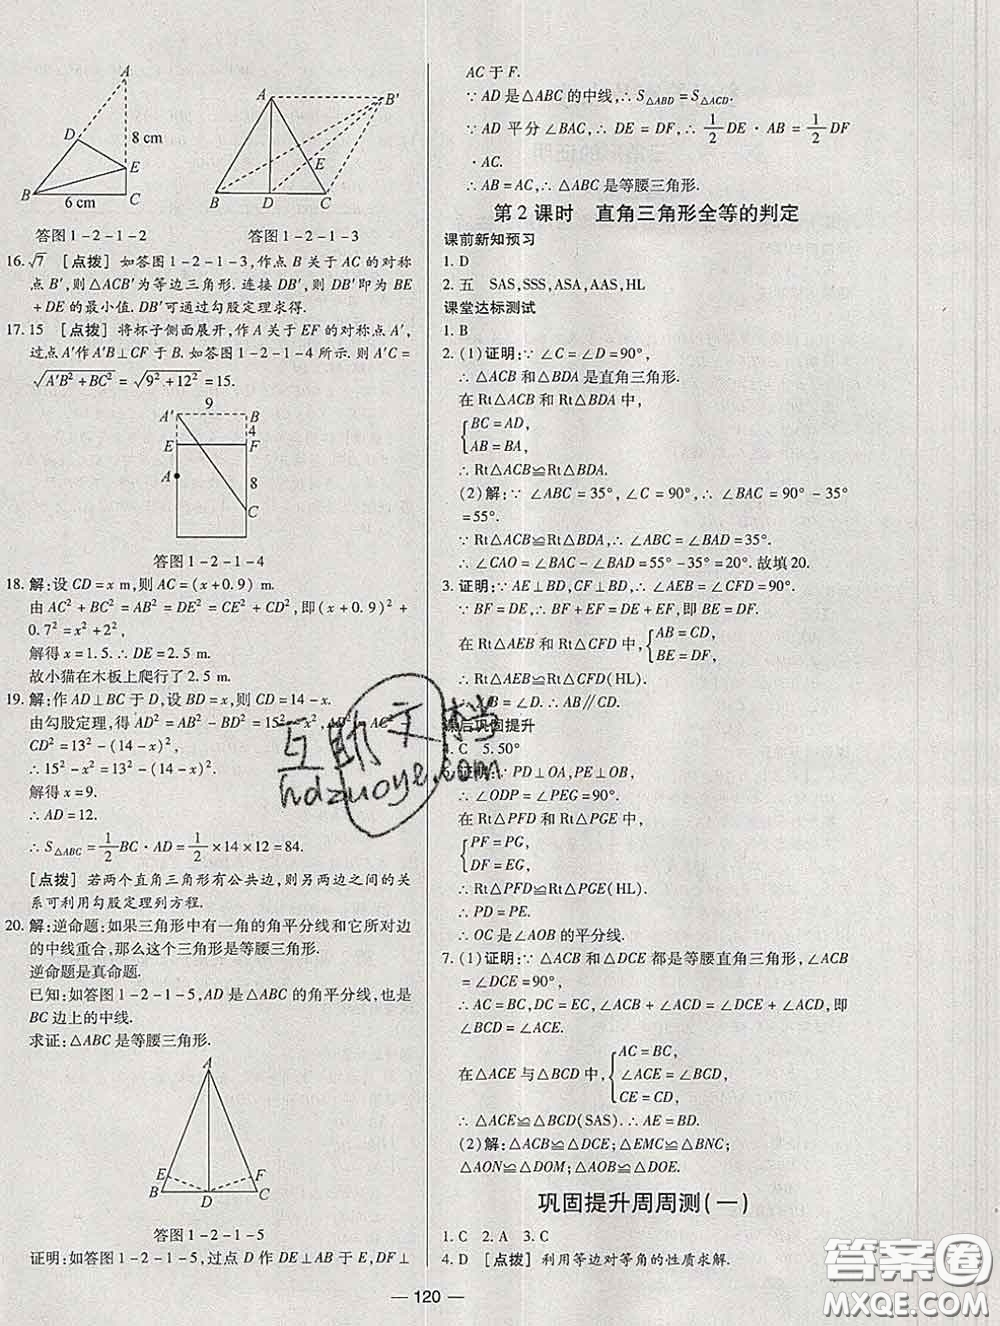 A
D
8 cm
E
B
6 cm
C
答图1-2-1-2
A
B′
E
B
D
C
答图1-2-1-3
16.√7 [点拨] 如答图1-2-1-3,作点 B 关于 AC 的对称
点 B′,则△ACB′为等边三角形.连接 DB′,则 DB′即为 BE
+DE 的最小值.DB′可通过勾股定理求得.
17.15 [点拨] 将杯子侧面展开,作 A 关于 EF 的对称点 A′,
过点 A′作 A′B⊥CF 于 B.如答图1-2-1-4所示.则 A′C=
√(A′B²+BC²)=√(9²+12²)=15.
9
A′
B
4
E
F
A
8
C
答图1-2-1-4
18.解:设 CD=x m,则 AC=(x+0.9) m.
由 AC²+BC²=AB²=DE²=CE²+CD²,即(x+0.9)²+
0.7²=x²+2²,
解得 x=1.5.∴DE=2.5 m.
故小猫在木板上爬行了2.5 m.
19.解:作 AD⊥BC 于 D,设 BD=x,则 CD=14-x.
由勾股定理,得 AD²=AB²-BD²=15²-x², AD²=AC²-
CD²=13²-(14-x)²,
∴15²-x²=13²-(14-x)².
解得 x=9.
∴AD=12.
∴S△ABC=1/2 BC·AD=1/2×14×12=84.
[点拨] 若两个直角三角形有公共边,则另两边之间的关
系可利用勾股定理列方程.
20.解:逆命题:如果三角形中有一角的角平分线和它所对边
的中线重合,那么这个三角形是等腰三角形.
逆命题是真命题.
已知:如答图1-2-1-5,AD 是△ABC 的角平分线,也是
BC 边上的中线.
求证:△ABC 是等腰三角形.
A
E
F
B
D
C
答图1-2-1-5
证明:如答图1-2-1-5,过点 D 作 DE⊥AB 于 E,DF⊥
AC 于 F.
∵AD 是△ABC 的中线,∴S△ABD=S△ACD.
∵AD 平分∠BAC,∴DE=DF,∴1/2 DE·AB=1/2 DF
·AC.
∴AB=AC,∴△ABC 是等腰三角形.
第2课时 直角三角形全等的判定
课前新知预习
1.D
2.五 SAS,SSS,ASA,AAS,HL
课堂达标测试
1.B
2.(1)证明:∵∠C=∠D=90°,
∴△ACB 和△BDA 是直角三角形.
在 Rt△ACB 和 Rt△BDA 中,
{BC=AD,
AB=BA,
∴Rt△ACB≌Rt△BDA.
(2)解:∵∠ABC=35°,∠C=90°,∴∠BAC=90°-35°
=55°.
∵Rt△ACB≌Rt△BDA,∴∠ABC=∠BAD=35°.
∴∠CAO=∠BAC-∠BAD=55°-35°=20°.故填20.
3.证明:∵AE⊥BD,CF⊥BD,∴∠AEB=∠CFD=90°.
∵BF=DE,∴BF+EF=DE+EF,即 BE=DF.
在 Rt△AEB 和 Rt△CFD 中,{AB=CD,
BE=DF,
∴Rt△AEB≌Rt△CFD(HL).
∴∠B=∠D.∴AB∥CD.
课后巩固提升
4.C 5.50°
6.证明:∵PD⊥OA,PE⊥OB,
∴∠ODP=∠PEG=90°.
在 Rt△PFD 和 Rt△PGE 中,
{PF=PG,
DF=EG,
∴Rt△PFD≌Rt△PGE(HL).
∴PD=PE.
∴OC 是∠AOB 的平分线.
7.(1)证明:∵△ABC 和△DCE 都是等腰直角三角形,∠ACB
=∠DCE=90°,
∴AC=BC,DC=EC,∠ACB+∠ACD=∠DCE+∠ACD,即
∠BCD=∠ACE.
在△ACE 与△BCD 中,{AC=BC,
∠ACE=∠BCD,
CE=CD,
∴△ACE≌△BCD(SAS).∴AE=BD.
(2)解:△ACB≌△DCE;△EMC≌△BNC;
△AON≌△DOM;△AOB≌△DOE.
巩固提升周周测(一)
1.C 2.A 3.C
4.D [点拨] 利用等边对等角的性质求解.
— 120 —
互助文档
hdzuoye.com
答案圈
MXQE.COM